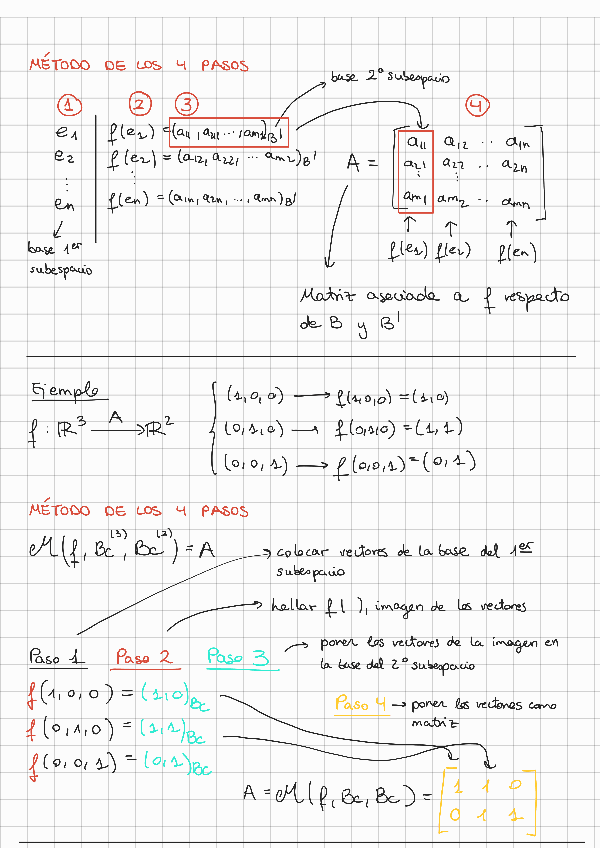 MÉTODO DE LOS 4 PASOS
base 2º subespacio
1 2 3 4
e1 f(e1) = (a11, a21, ..., am1)B'
e2 f(e2) = (a12, a22, ... am2)B'
⋮ ⋮
en f(en) = (a1n, a2n, ..., amn)B'
base 1er
subespacio
A = [a11 a12 ... a1n
a21 a22 ... a2n
⋮ ⋮
am1 am2 ... amn]
f(e1) f(e2) f(en)
Matriz asociada a f respecto
de B y B'
Ejemplo
f: ℝ³ —A→ ℝ²
(1,0,0) → f(1,0,0) = (1,0)
(0,1,0) → f(0,1,0) = (1,1)
(0,0,1) → f(0,0,1) = (0,1)
MÉTODO DE LOS 4 PASOS
M(f, Bc(3), Bc(2)) = A
→ colocar vectores de la base del 1er
subespacio
→ hallar f( ), imagen de los vectores
→ poner los vectores de la imagen en
la base del 2º subespacio
Paso 1 Paso 2 Paso 3
f(1,0,0) = (1,0)Bc
f(0,1,0) = (1,1)Bc
f(0,0,1) = (0,1)Bc
Paso 4 → poner los vectores como
matriz
A = M(f, Bc, Bc) = [1 1 0
0 1 1]